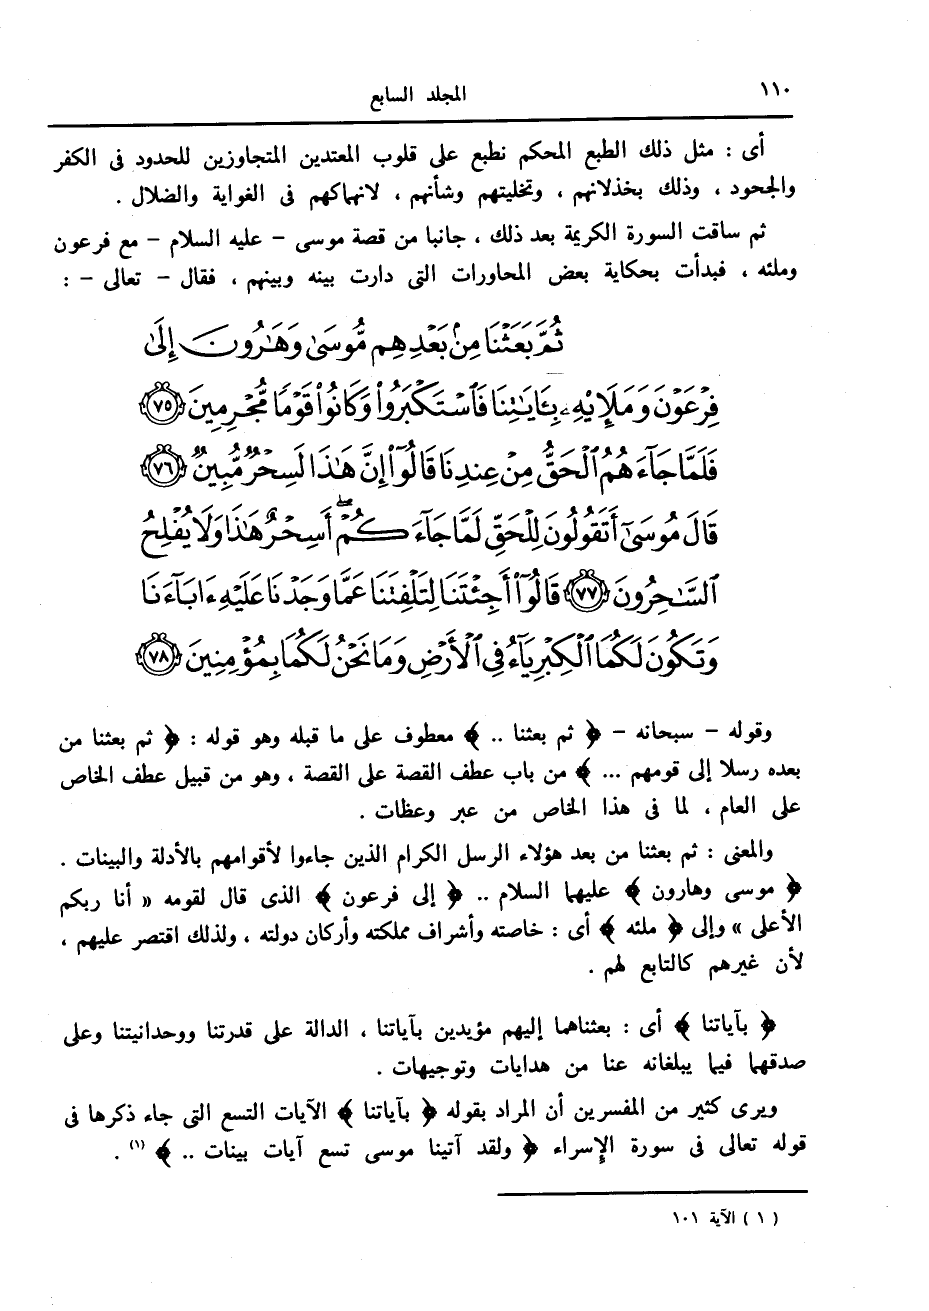 ١١٠
المجلد السابع
أى : مثل ذلك الطبع المحكم نطبع على قلوب المعتدين المتجاوزين للحدود فى الكفر
والجحود ، وذلك بخذلانهم ، وتخليتهم وشأنهم ، لانهماكهم فى الغواية والضلال .
ثم ساقت السورة الكريمة بعد ذلك ، جانبا من قصة موسى – عليه السلام – مع فرعون
وملئه ، فبدأت بحكاية بعض المحاورات التى دارت بينه وبينهم ، فقال – تعالى – :
ثُمَّ بَعَثْنَا مِنۢ بَعْدِهِم مُّوسَىٰ وَهَٰرُونَ إِلَىٰ
فِرْعَوْنَ وَمَلَإِي۟هِۦ بِـَٔايَٰتِنَا فَٱسْتَكْبَرُوا۟ وَكَانُوا۟ قَوْمًا مُّجْرِمِينَ ٧٥
فَلَمَّا جَآءَهُمُ ٱلْحَقُّ مِنْ عِندِنَا قَالُوٓا۟ إِنَّ هَٰذَا لَسِحْرٌ مُّبِينٌ ٧٦
قَالَ مُوسَىٰٓ أَتَقُولُونَ لِلْحَقِّ لَمَّا جَآءَكُمْ ۖ أَسِحْرٌ هَٰذَا وَلَا يُفْلِحُ
ٱلسَّٰحِرُونَ ٧٧ قَالُوٓا۟ أَجِئْتَنَا لِتَلْفِتَنَا عَمَّا وَجَدْنَا عَلَيْهِ ءَابَآءَنَا
وَتَكُونَ لَكُمَا ٱلْكِبْرِيَآءُ فِى ٱلْأَرْضِ وَمَا نَحْنُ لَكُمَا بِمُؤْمِنِينَ ٧٨
وقوله – سبحانه – ﴿ ثم بعثنا .. ﴾ معطوف على ما قبله وهو قوله : ﴿ ثم بعثنا من
بعده رسلا إلى قومهم ... ﴾ من باب عطف القصة على القصة ، وهو من قبيل عطف الخاص
على العام ، لما فى هذا الخاص من عبر وعظات .
والمعنى : ثم بعثنا من بعد هؤلاء الرسل الكرام الذين جاءوا لأقوامهم بالأدلة والبينات .
﴿ موسى وهارون ﴾ عليهما السلام .. ﴿ إلى فرعون ﴾ الذى قال لقومه « أنا ربكم
الأعلى » وإلى ﴿ ملئه ﴾ أى : خاصته وأشراف مملكته وأركان دولته ، ولذلك اقتصر عليهم ،
لأن غيرهم كالتابع لهم .
﴿ بآياتنا ﴾ أى : بعثناهما إليهم مؤيدين بآياتنا ، الدالة على قدرتنا ووحدانيتنا وعلى
صدقهما فيما يبلغانه عنا من هدايات وتوجيهات .
ويرى كثير من المفسرين أن المراد بقوله ﴿ بآياتنا ﴾ الآيات التسع التى جاء ذكرها فى
قوله تعالى فى سورة الإسراء ﴿ ولقد آتينا موسى تسع آيات بينات .. ﴾ (١) .
( ١ ) الآية ١٠١